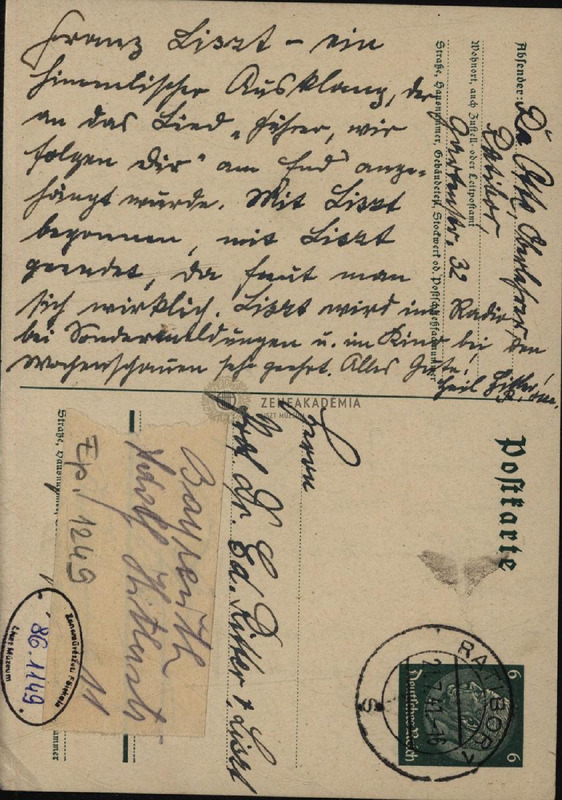 Franz Liszt – ein
himmlischer Ausklang, der
an das Lied „Führer, wir
folgen Dir" am End ange-
hängt wurde. Mit Liszt
begonnen, mit Liszt
geendet, da freut man
sich wirklich. Liszt wird im Radio
bei Sondermeldungen u. im Kino bei den
Wochenschauen sehr geehrt. Alles Gute!
Heil Hitler!
Absender:
Ratibor,
Wohnort, auch Zustell- oder Leitpostamt
Gartenstr. 32
Straße, Hausnummer, Gebäudeteil, Stockwerk od. Postschließfachnummer
Postkarte
Herrn
Prof. Dr. Ed. Ritter v. Liszt
Bayreuth
Adolf Hitlerstr
11
Ep. 1249
Straße, Hausnummer
ZENEAKADEMIA
LISZT MÚZEUM
RATIBOR 1
6
6
Deutsches Reich
86.1149.
Liszt Múzeum